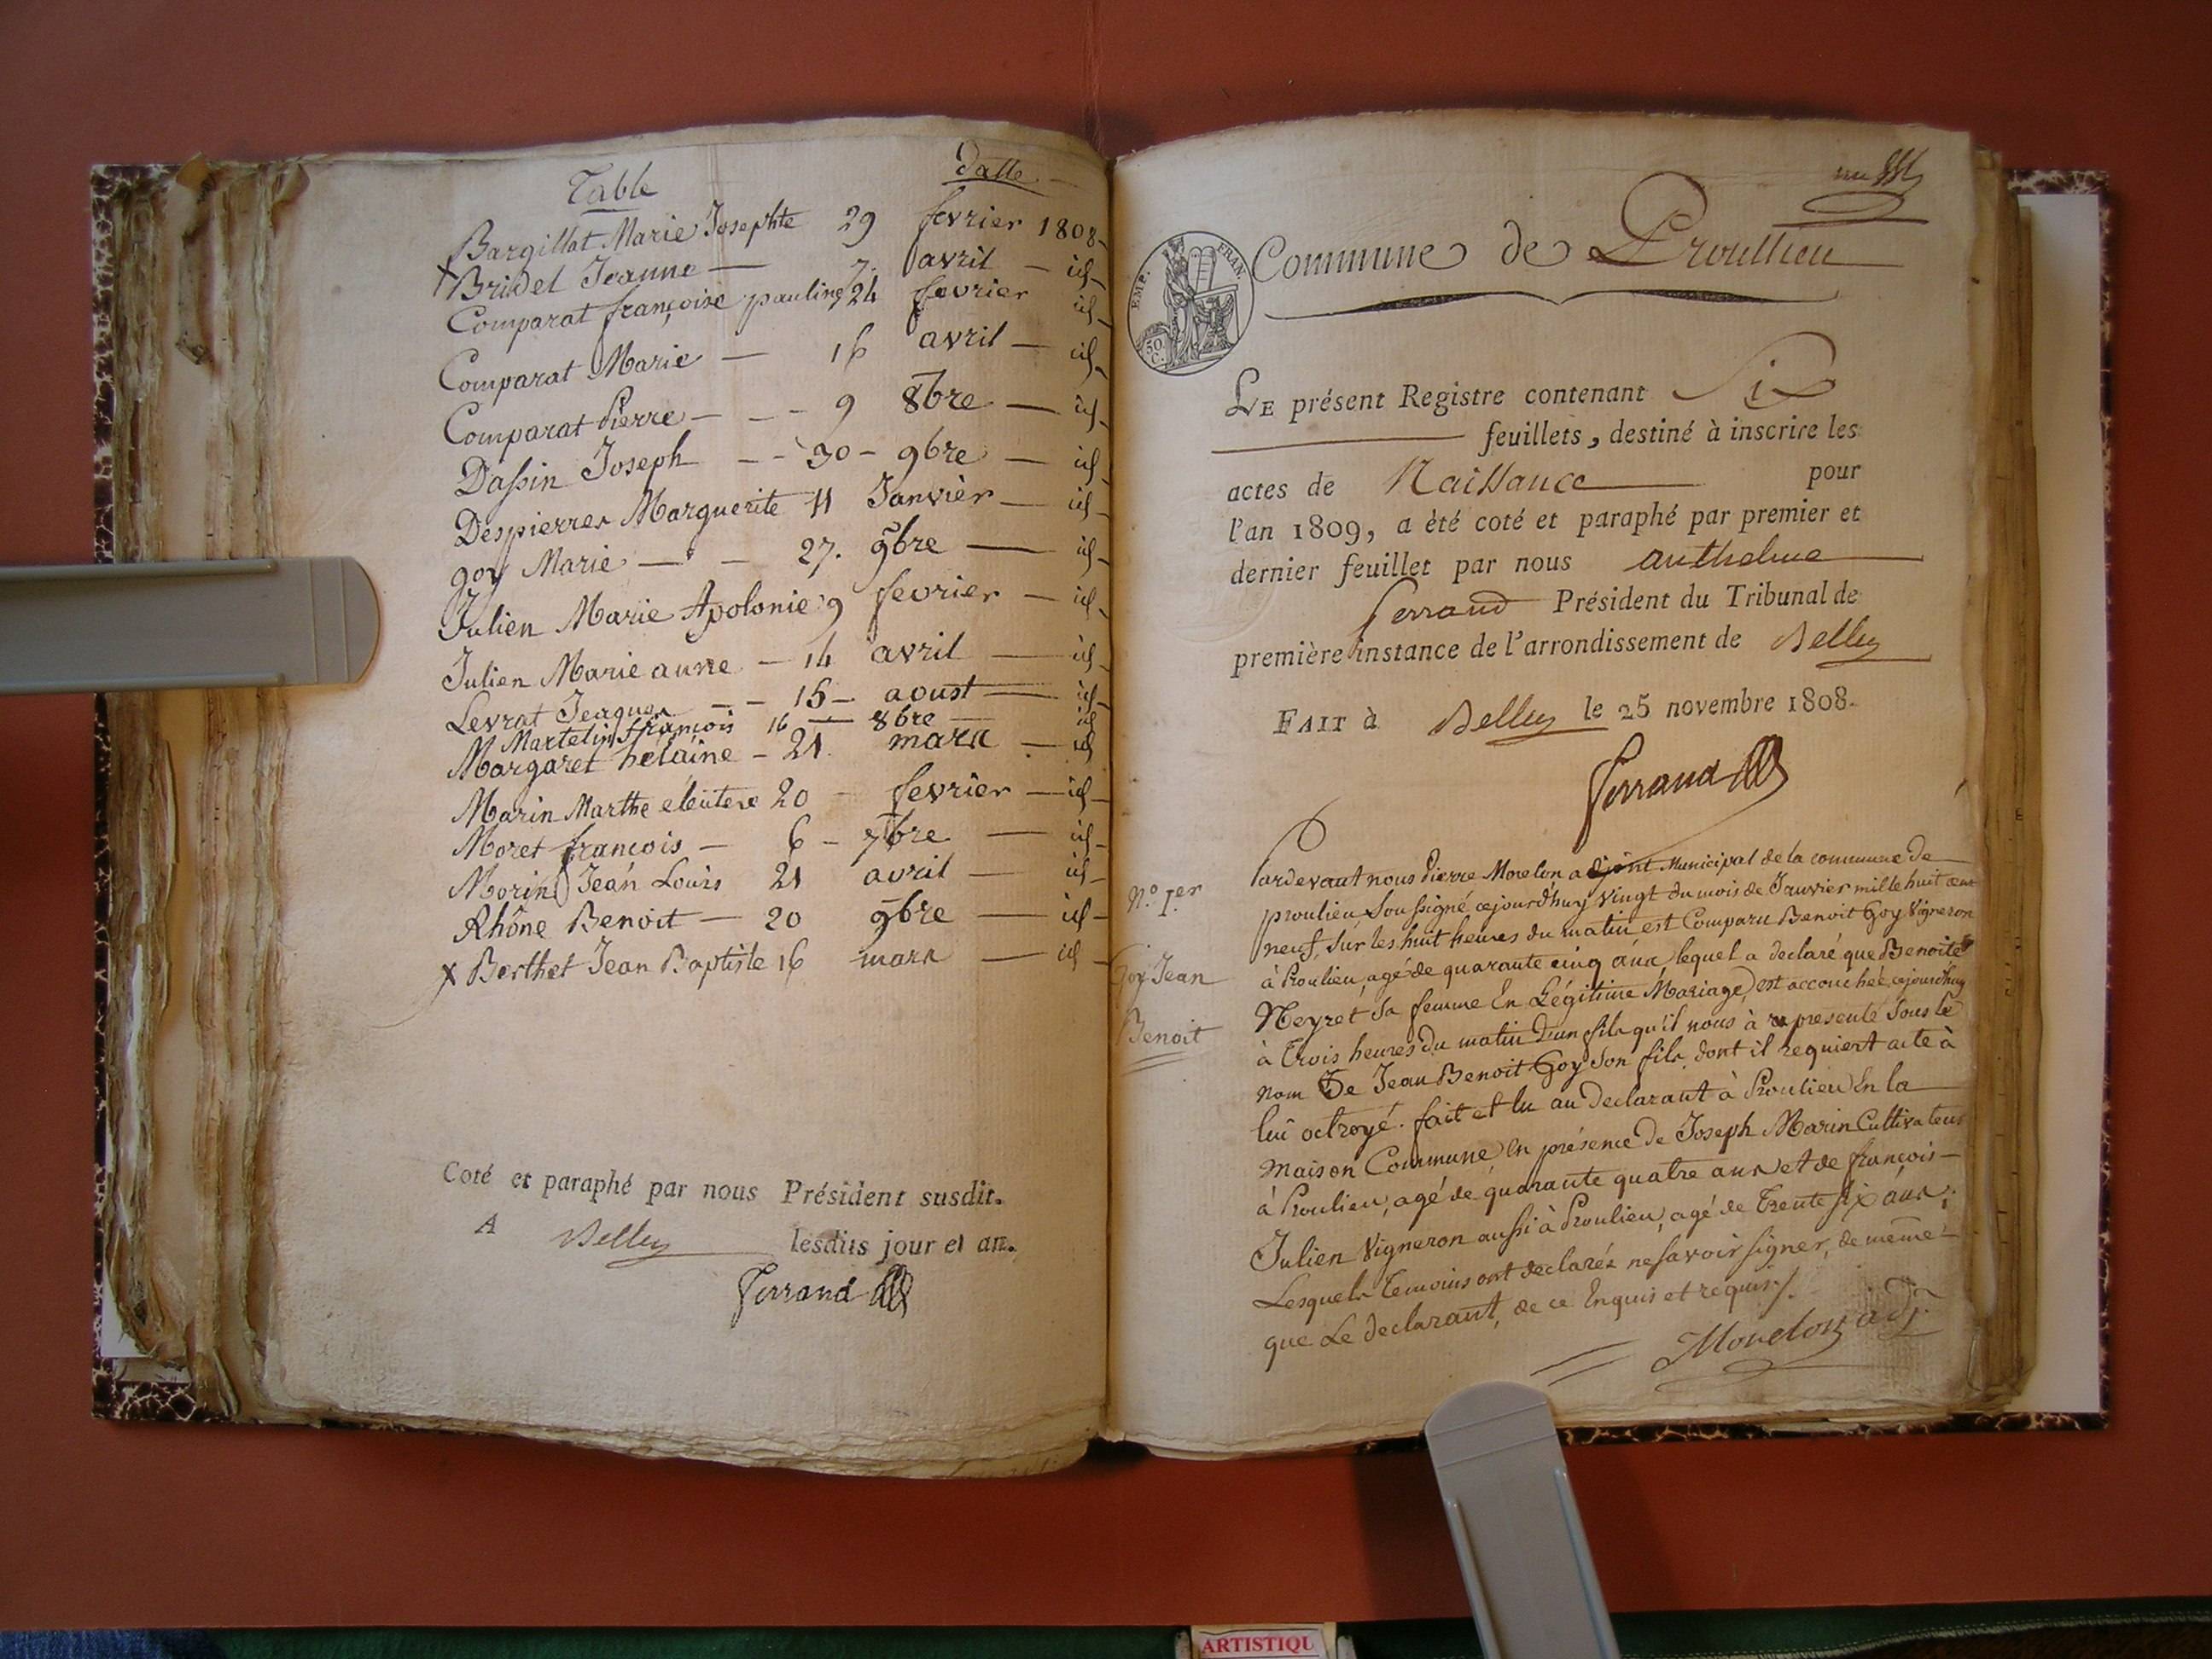 Table
datte
Bargillat Marie Josephte 29 fevrier 1808
Bridel Jeanne — 7. avril — id
Comparat françoise pauline 24 fevrier id
Comparat Marie — 16 avril — id
Comparat Pierre — — - 9 8bre — id
Dassin Joseph — - 30 - 9bre — id
Despierres Marguerite 11 Janvier — id
Goy Marie — - 27. 9bre — id
Julien Marie Apolonie 9 fevrier — id
Julien Marie anne — 14 avril — id
Levrat Jacques — - 15 - aoust — id
Martelin françois 16 — 8bre — id
Margaret hélaine - 21. mars — id
Marin Marthe eleütere 20 - fevrier — id
Moret francois — 6 - 7bre — id
Morin Jean Louis 21 avril — id
Rhône Benoit — 20 9bre — id
x Berthet Jean Baptiste 16 mars — id
Coté et paraphé par nous Président susdit.
A Belley lesdits jour et an.
Ferrand
EMP. FRAN.
50 C.
Commune de Proullieu
LE présent Registre contenant Six
feuillets, destiné à inscrire les
actes de Naissance pour
l'an 1809, a èté coté et paraphé par premier et
dernier feuillet par nous anthelme
ferrand Président du Tribunal de
première instance de l'arrondissement de Belley
FAIT à Belley le 25 novembre 1808.
Ferrand
N.º 1.er
Goy Jean
Benoit
Pardevant nous Pierre Morelon adjoint Municipal de la commune de
proulieu Soussigné, cejourd'huy vingt du mois de Janvier mille huit cent
neuf, sur les huit heures du matin est Comparu Benoit Goy Vigneron
à Proulieu, agé de quarante cinq ans, lequel a declaré que Benoite
Neyret Sa femme En Légitime Mariage, est accouchée, cejourd'huy
à Trois heures Du matin D'un fils qu'il nous à representé Sous le
nom De Jean Benoit Goy Son fils, dont il requiert acte à
lui octroyé. fait et lu au declarant à Proulieu En la
Maison Commune en présence de Joseph Marin Cultivateur
à Proulieu, agé de quarante quatre ans et de françois
Julien Vigneron aussi à Proulieu, agé de Trente six ans;
Lesquels Temoins ont declarés ne savoir signer, de même
que Le declarant, de ce Enquis et requis /.
Morelon adj.
ARTISTIQU